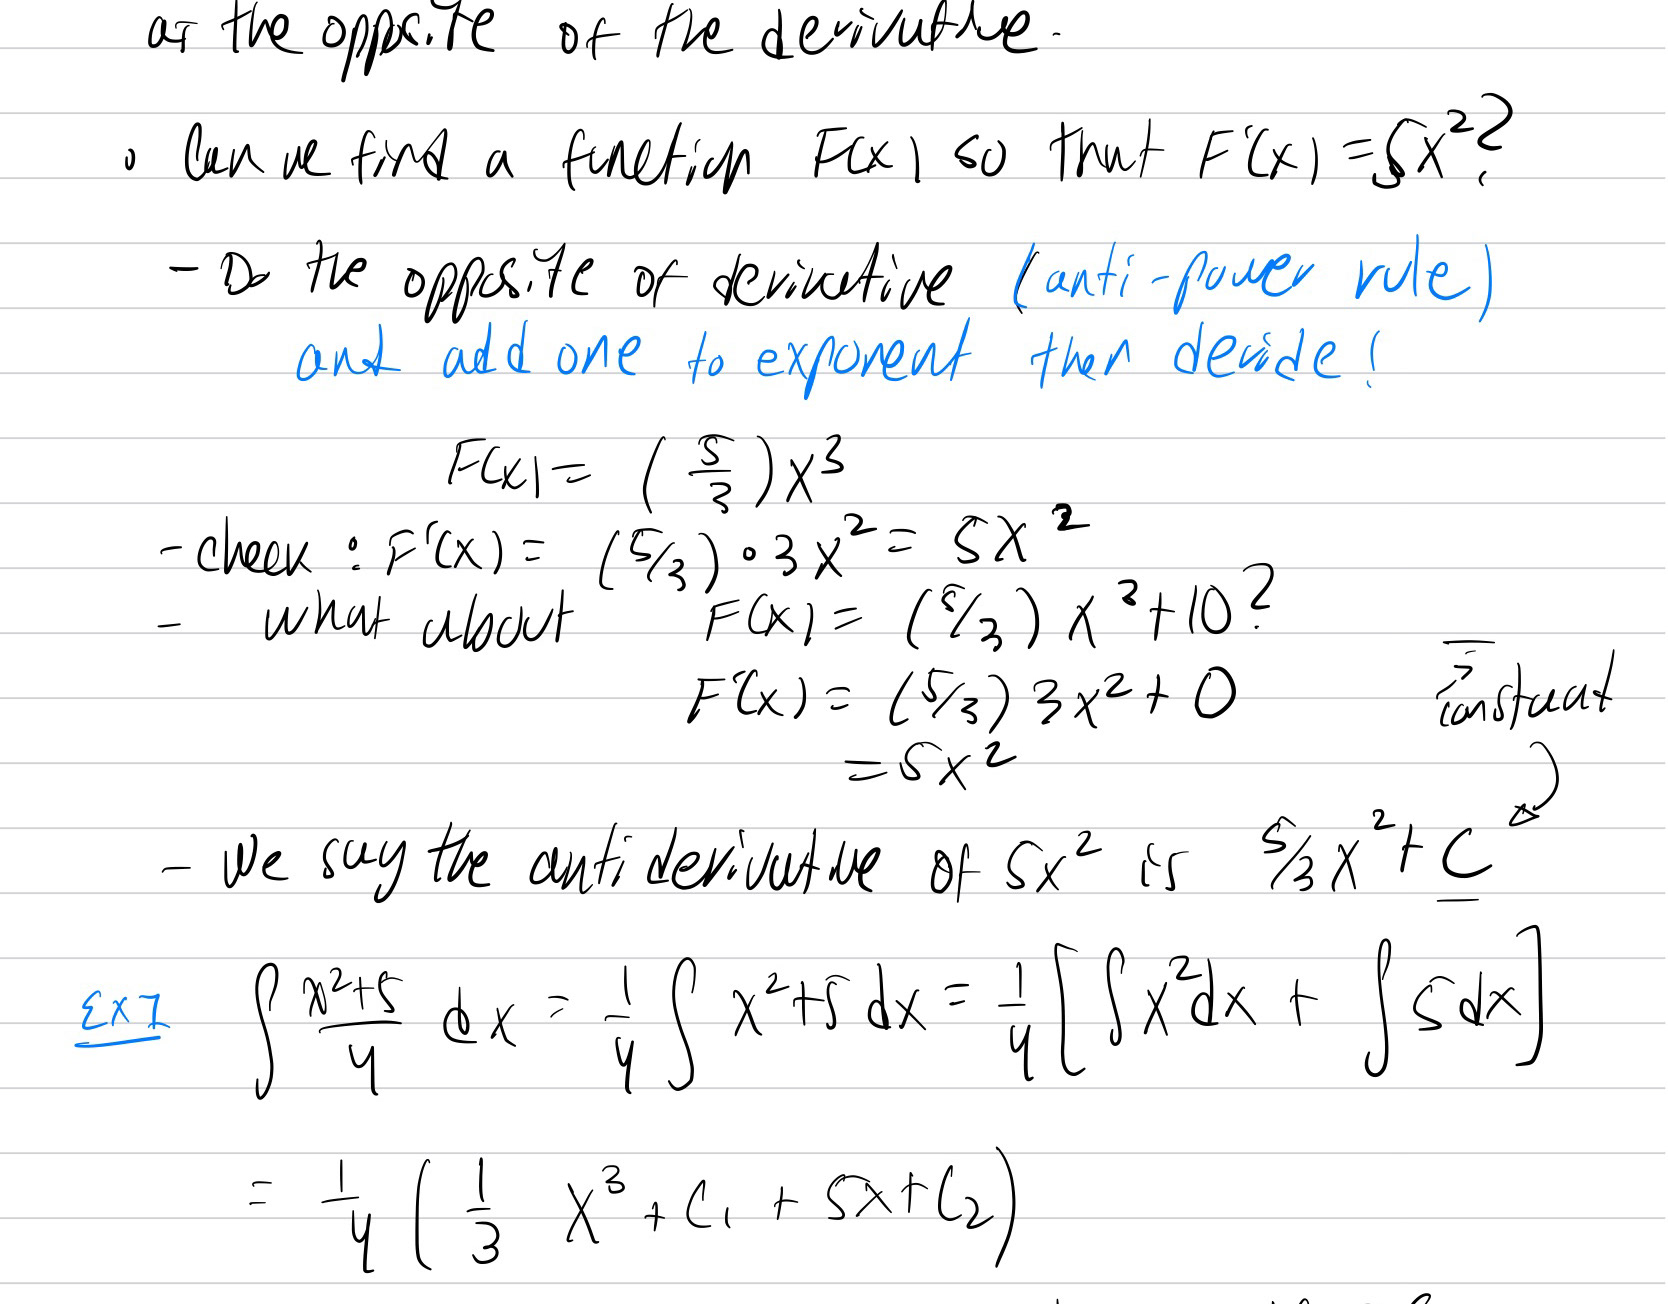 as the opposite of the derivative.
• Can we find a function F(x) so that F'(x) = 5x²?
- Do the opposite of derivative (anti-power rule)
and add one to exponent then devide!
F(x) = (5/3)x³
- check : F'(x) = (5/3) • 3x² = 5x²
- what about F(x) = (5/3) x³ + 10?
F'(x) = (5/3) 3x² + 0
= 5x²
constant
- We say the antiderivative of 5x² is 5/3 x² + C
Ex 1 ∫ (x²+5)/4 dx = 1/4 ∫ x²+5 dx = 1/4 [∫x²dx + ∫5dx]
= 1/4 (1/3 x³ + C₁ + 5x + C₂)